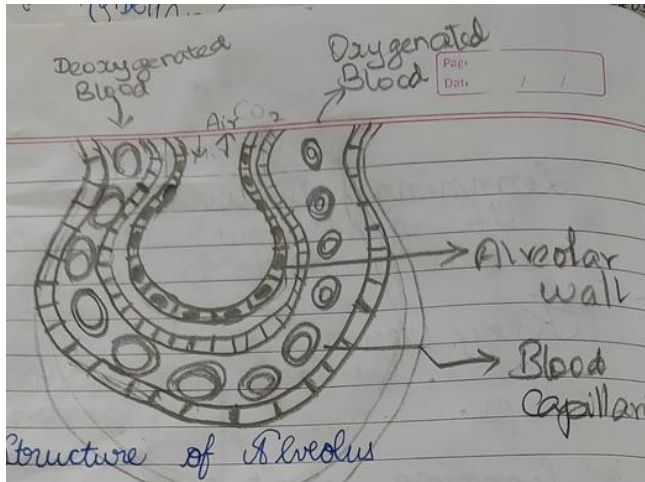 Deoxygenated
Blood
Oxygenated
Blood
Page
Date / /
Air CO2
Alveolar
wall
Blood
Capillar
Structure of Alveolus